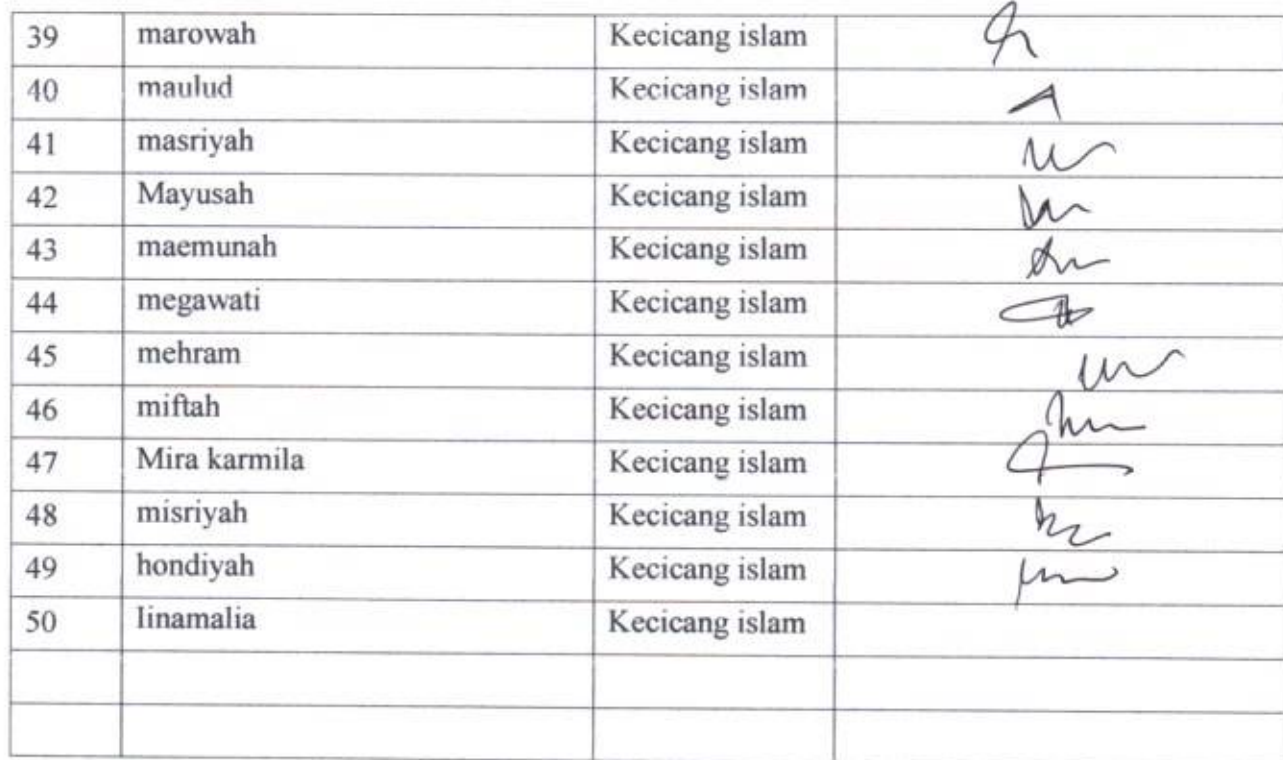 39 marowah Kecicang islam
40 maulud Kecicang islam
41 masriyah Kecicang islam
42 Mayusah Kecicang islam
43 maemunah Kecicang islam
44 megawati Kecicang islam
45 mehram Kecicang islam
46 miftah Kecicang islam
47 Mira karmila Kecicang islam
48 misriyah Kecicang islam
49 hondiyah Kecicang islam
50 Iinamalia Kecicang islam